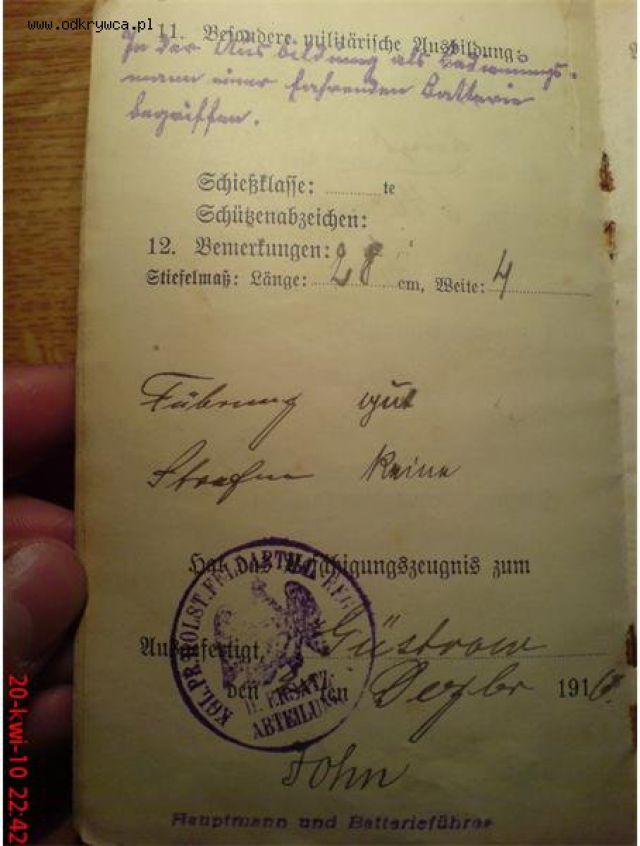 www.odkrywca.pl
11. Besondere militärische Ausbildung:
In der Ausbildung als Bedienungs-
mann einer fahrenden Batterie
begriffen.
Schießklasse: te
Schützenabzeichen:
12. Bemerkungen:
Stiefelmaß: Länge: 28 cm, Weite: 4
Führung gut
Strafen keine
Hat das Befähigungszeugnis zum
Ausgefertigt, Güstrow
den ten Dezbr 1916
KGL. PR. HOLST. FELDARTILL. REG.
II. ERSATZ-
ABTEILUNG
John
Hauptmann und Batterieführer
20-kwi-10 22:42